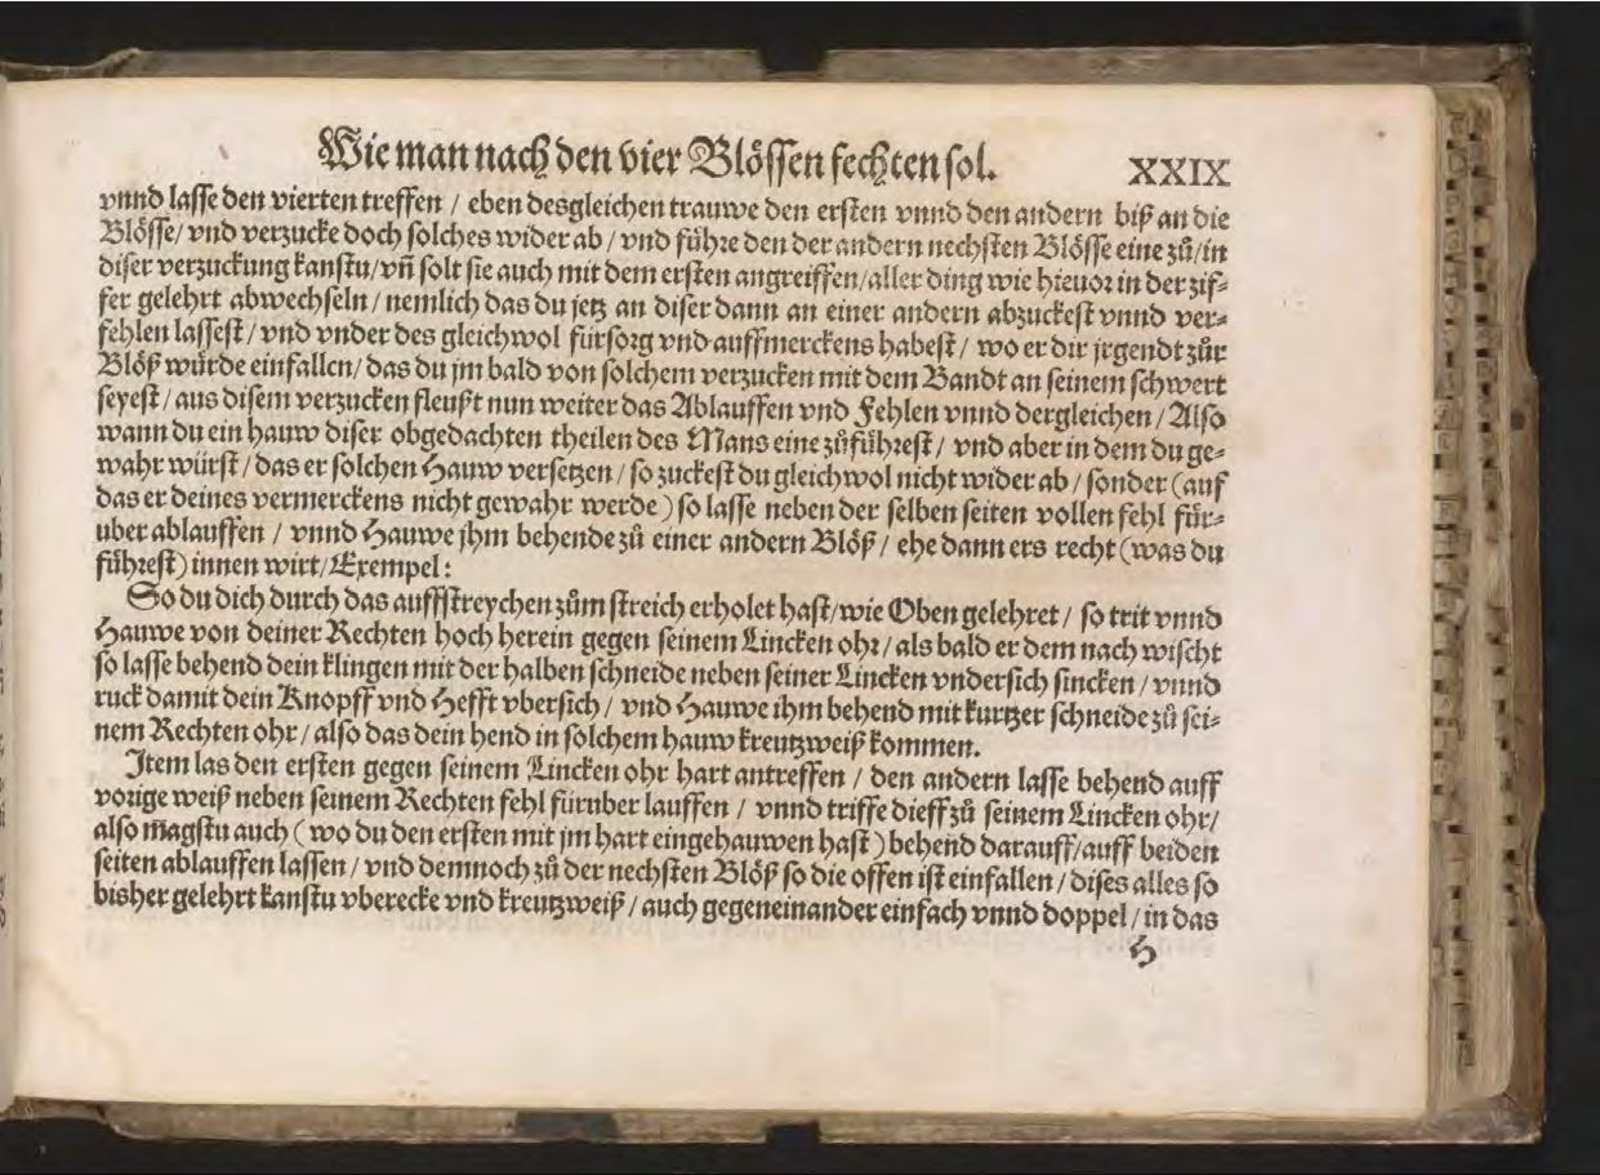 Wie man nach den vier Blössen fechten sol. XXIX
vnnd lasse den vierten treffen / eben desgleichen trauwe den ersten vnnd den andern biß an die
Blösse / vnd verzucke doch solches wider ab / vnd führe den der andern nechsten Blösse eine zů / in
diser verzuckung kanstu / vñ solt sie auch mit dem ersten angreiffen / aller ding wie hieuor in der zif-
fer gelehrt abwechseln / nemlich das du jetz an diser dann an einer andern abzuckest vnnd ver-
fehlen lassest / vnd vnder des gleichwol fürsorg vnd auffmerckens habest / wo er dir jrgendt zůr
Blöß würde einfallen / das du jm bald von solchem verzucken mit dem Bandt an seinem schwert
seyest / aus disem verzucken fleußt nun weiter das Ablauffen vnd Fehlen vnnd dergleichen / Also
wann du ein hauw diser obgedachten theilen des Mans eine zůführest / vnd aber in dem du ge-
wahr würst / das er solchen Hauw versetzen / so zuckest du gleichwol nicht wider ab / sonder (auf
das er deines vermerckens nicht gewahr werde) so lasse neben der selben seiten vollen fehl für-
uber ablauffen / vnnd Hauwe jhm behende zů einer andern Blöß / ehe dann ers recht (was du
führest) innen wirt / Exempel:
So du dich durch das auffstreychen zům streich erholet hast / wie Oben gelehret / so trit vnnd
Hauwe von deiner Rechten hoch herein gegen seinem Lincken ohr / als bald er dem nach wischt
so lasse behend dein klingen mit der halben schneide neben seiner Lincken vndersich sincken / vnnd
ruck damit dein Knopff vnd Hefft vbersich / vnd Hauwe ihm behend mit kurtzer schneide zů sei-
nem Rechten ohr / also das dein hend in solchem hauw kreutzweiß kommen.
Item las den ersten gegen seinem Lincken ohr hart antreffen / den andern lasse behend auff
vorige weiß neben seinem Rechten fehl fürüber lauffen / vnnd triffe dieff zů seinem Lincken ohr /
also magstu auch (wo du den ersten mit jm hart eingehauwen hast) behend darauff / auff beiden
seiten ablauffen lassen / vnd demnoch zů der nechsten Blöß so die offen ist einfallen / dises alles so
bisher gelehrt kanstu vberecke vnd kreutzweiß / auch gegeneinander einfach vnnd doppel / in das
H